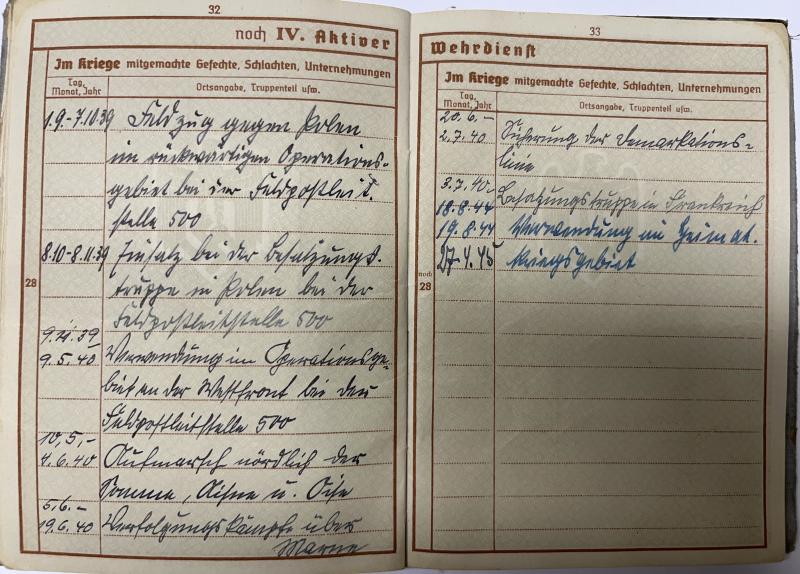 32
noch IV. Aktiver
Im Kriege mitgemachte Gefechte, Schlachten, Unternehmungen
Tag, Monat, Jahr
Ortsangabe, Truppenteil usw.
1.9.-7.10.39 Feldzug gegen Polen
im rückwärtigen Operations-
gebiet bei der Feldpostleit-
stelle 500
8.10-8.11.39 Einsatz bei der Besatzungs-
truppe in Polen bei der
28
Feldpostleitstelle 500
9.11.39
9.5.40 Verwendung im Operationsge-
biet an der Westfront bei der
Feldpostleitstelle 500
10.5.-
4.6.40 Aufmarsch nördlich der
Somme, Aisne u. Oise
5.6.-
19.6.40 Verfolgungskämpfe über
Marne
33
Wehrdienst
Im Kriege mitgemachte Gefechte, Schlachten, Unternehmungen
Tag, Monat, Jahr
Ortsangabe, Truppenteil usw.
20.6.-
2.7.40 Sicherung der Demarkations-
linie
3.7.40- Besatzungstruppe in Frankreich
18.8.44
19.8.44 Verwendung im Heimat-
27.4.45 kriegsgebiet
noch
28